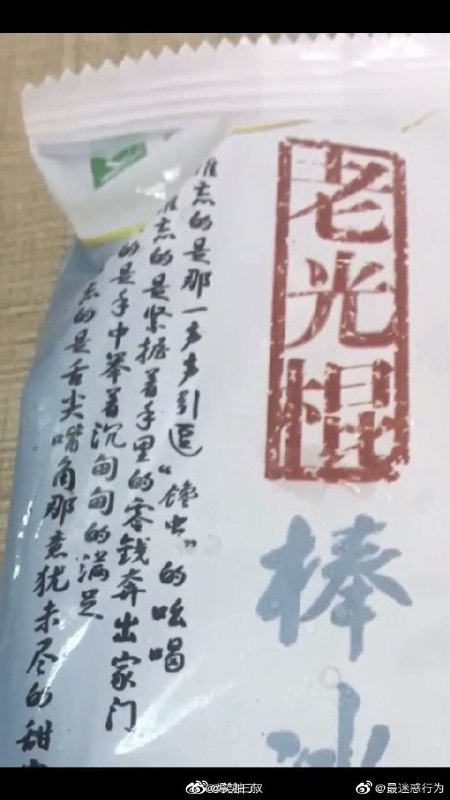 老光棍
棒冰
难忘的是那一声声引逗“馋虫”的吆喝
难忘的是紧握着手里的零钱奔出家门
的是手中举着沉甸甸的满足
忘的是舌尖嘴角那意犹未尽的甜
@最迷惑行为